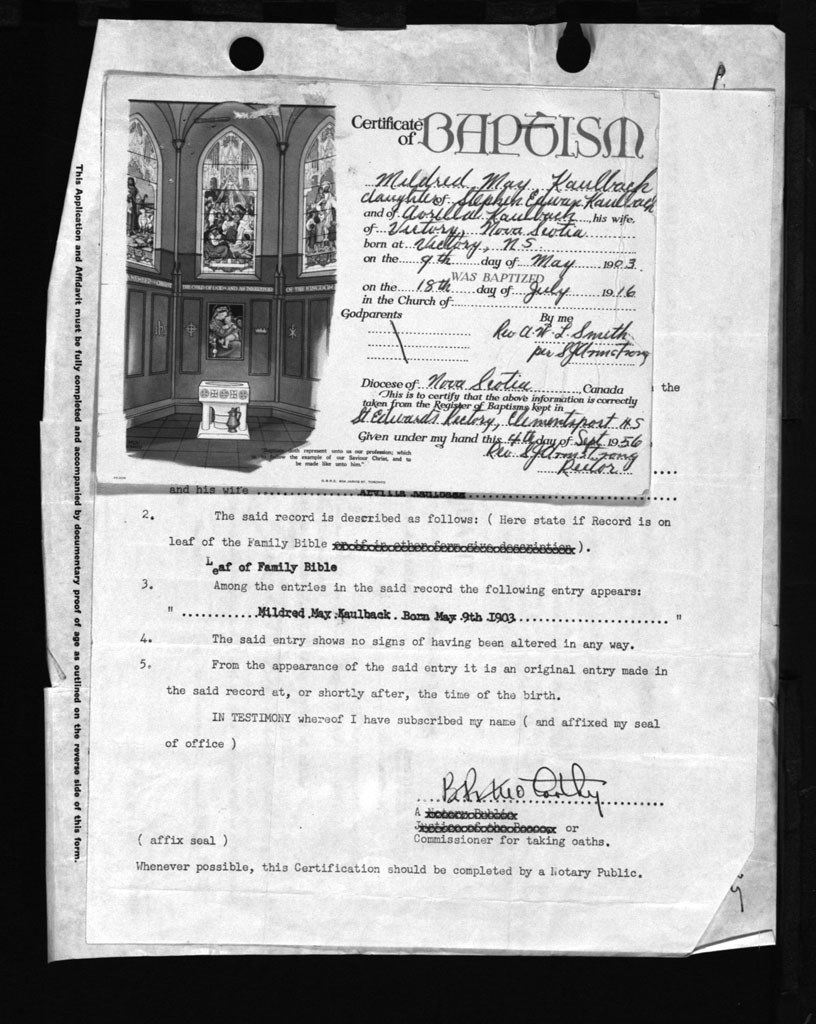 Certificate of BAPTISM
Mildred May Kaulback
daughter of Stephen Edwar Kaulback
and of Avrilla Kaulback, his wife,
of Victory, Nova Scotia
born at Victory, N.S
on the 9th day of May 1903.
WAS BAPTIZED
on the 18th day of July 1916
in the Church of:
Godparents
By me
Rev A. W. L. Smith
per S J Armstrong
Diocese of Nova Scotia, Canada
This is to certify that the above information is correctly
taken from the Register of Baptisms kept in
St Edwards Rectory, Clementsport N.S
Given under my hand this 4th day of Sept. 1956
Rev. S J Armstrong
Rector
THE CHILD OF GOD AND AN INHERITOR OF THE KINGDOM
represent unto us our profession; which
the example of our Saviour Christ, and to
be made like unto him."
the
and his wife Arvilla Kaulback
2. The said record is described as follows: ( Here state if Record is on
leaf of the Family Bible or if in other form give description ).
Leaf of Family Bible
3. Among the entries in the said record the following entry appears:
" Mildred May Kaulback. Born May 9th 1903 "
4. The said entry shows no signs of having been altered in any way.
5. From the appearance of the said entry it is an original entry made in
the said record at, or shortly after, the time of the birth.
IN TESTIMONY whereof I have subscribed my name ( and affixed my seal
of office )
A Notary Public
Justice of the Peace or
( affix seal )
Commissioner for taking oaths.
Whenever possible, this Certification should be completed by a Notary Public.
This Application and Affidavit must be fully completed and accompanied by documentary proof of age as outlined on the reverse side of this form.